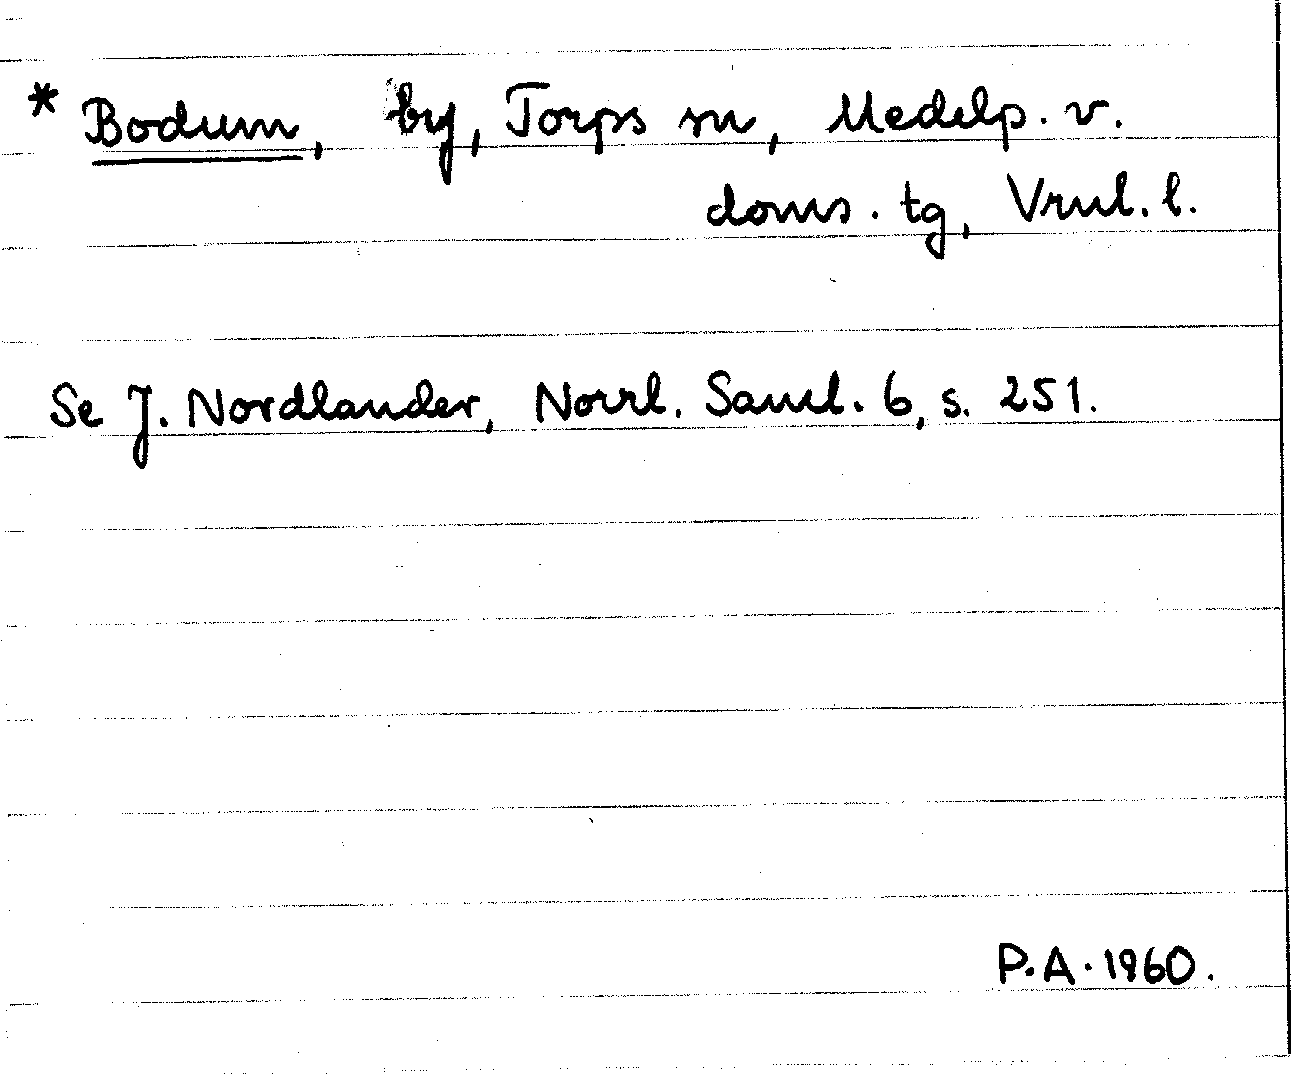 * Bodum, by, Torps sn, Medelp. v.
doms. tg, Vrnl. l.
Se J. Nordlander, Norrl. Saml. 6, s. 251.
P.A. 1960.